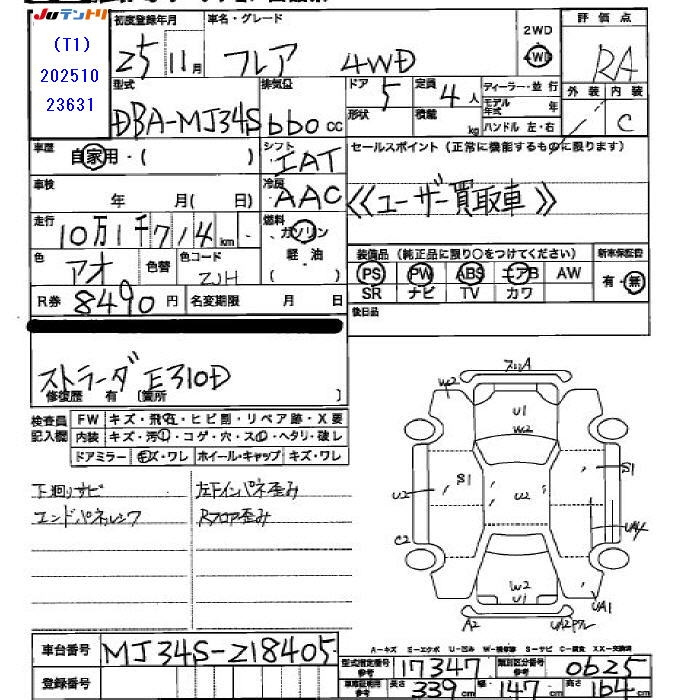 Juテントリ
(T1)
202510
23631
初度登録年月 車名・グレード
25 11月 フレア 4WD
2WD
4WD
評価点
RA
外装 内装
C
型式 排気量 ドア 定員
DBA-MJ34S 660cc 5 4人
形状 積載 kg
ディーラー・並行
モデル年式 年
ハンドル 左・右
車歴 自家用・( ) シフト IAT
セールスポイント(正常に機能するものに限ります)
車検 年 月( 日) 冷房 AAC
《ユーザー買取車》
走行 10万1千714km 燃料 ガソリン
軽・油
( )
色 アオ 色替 色コード ZJH
装備品(純正品に限り○をつけてください) 新車保証書
PS PW ABS エアB AW 有・無
SR ナビ TV カワ
R券 8490円 名変期限 月 日
後日品
ストラーダ E310D
修復歴 有 〔箇所 〕
検査員記入欄
FW キズ・飛石・ヒビ割・リペア跡・X要
内装 キズ・汚・コゲ・穴・ス・ヘタリ・破レ
ドアミラー キズ・ワレ ホイール・キャップ キズ・ワレ
下廻りサビ 左下インパネ歪み
エンドパネルシワ Rフロア歪み
A
W2
U1
W2
S1
S1
U2
U2
C2
W2
U1
UA1
A2
A-キズ E-エクボ U-凹み W-補修跡 S-サビ C-腐食 XX-交換済
車台番号 MJ34S-218405
登録番号
型式指定番号 参考 17347 類別区分番号 参考 0625
車両証明用 参考 長さ 339cm 幅 147cm 高さ 164cm